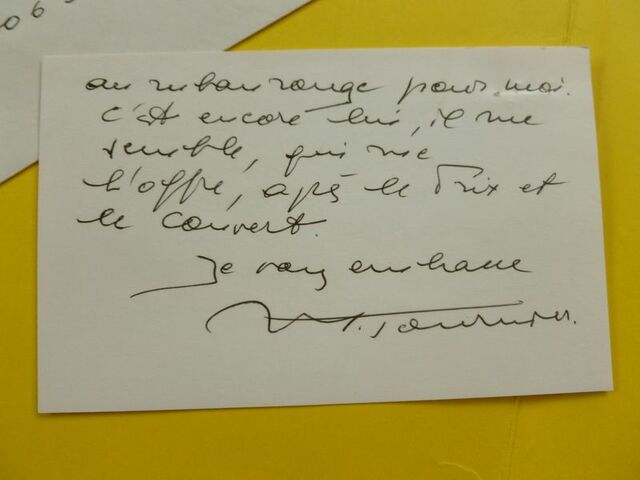 063
au ruban rouge pour moi.
C'est encore lui, il me
semble, qui me
l'offre, après le Prix et
le Couvert.
Je vous embrasse
M. Tournier.